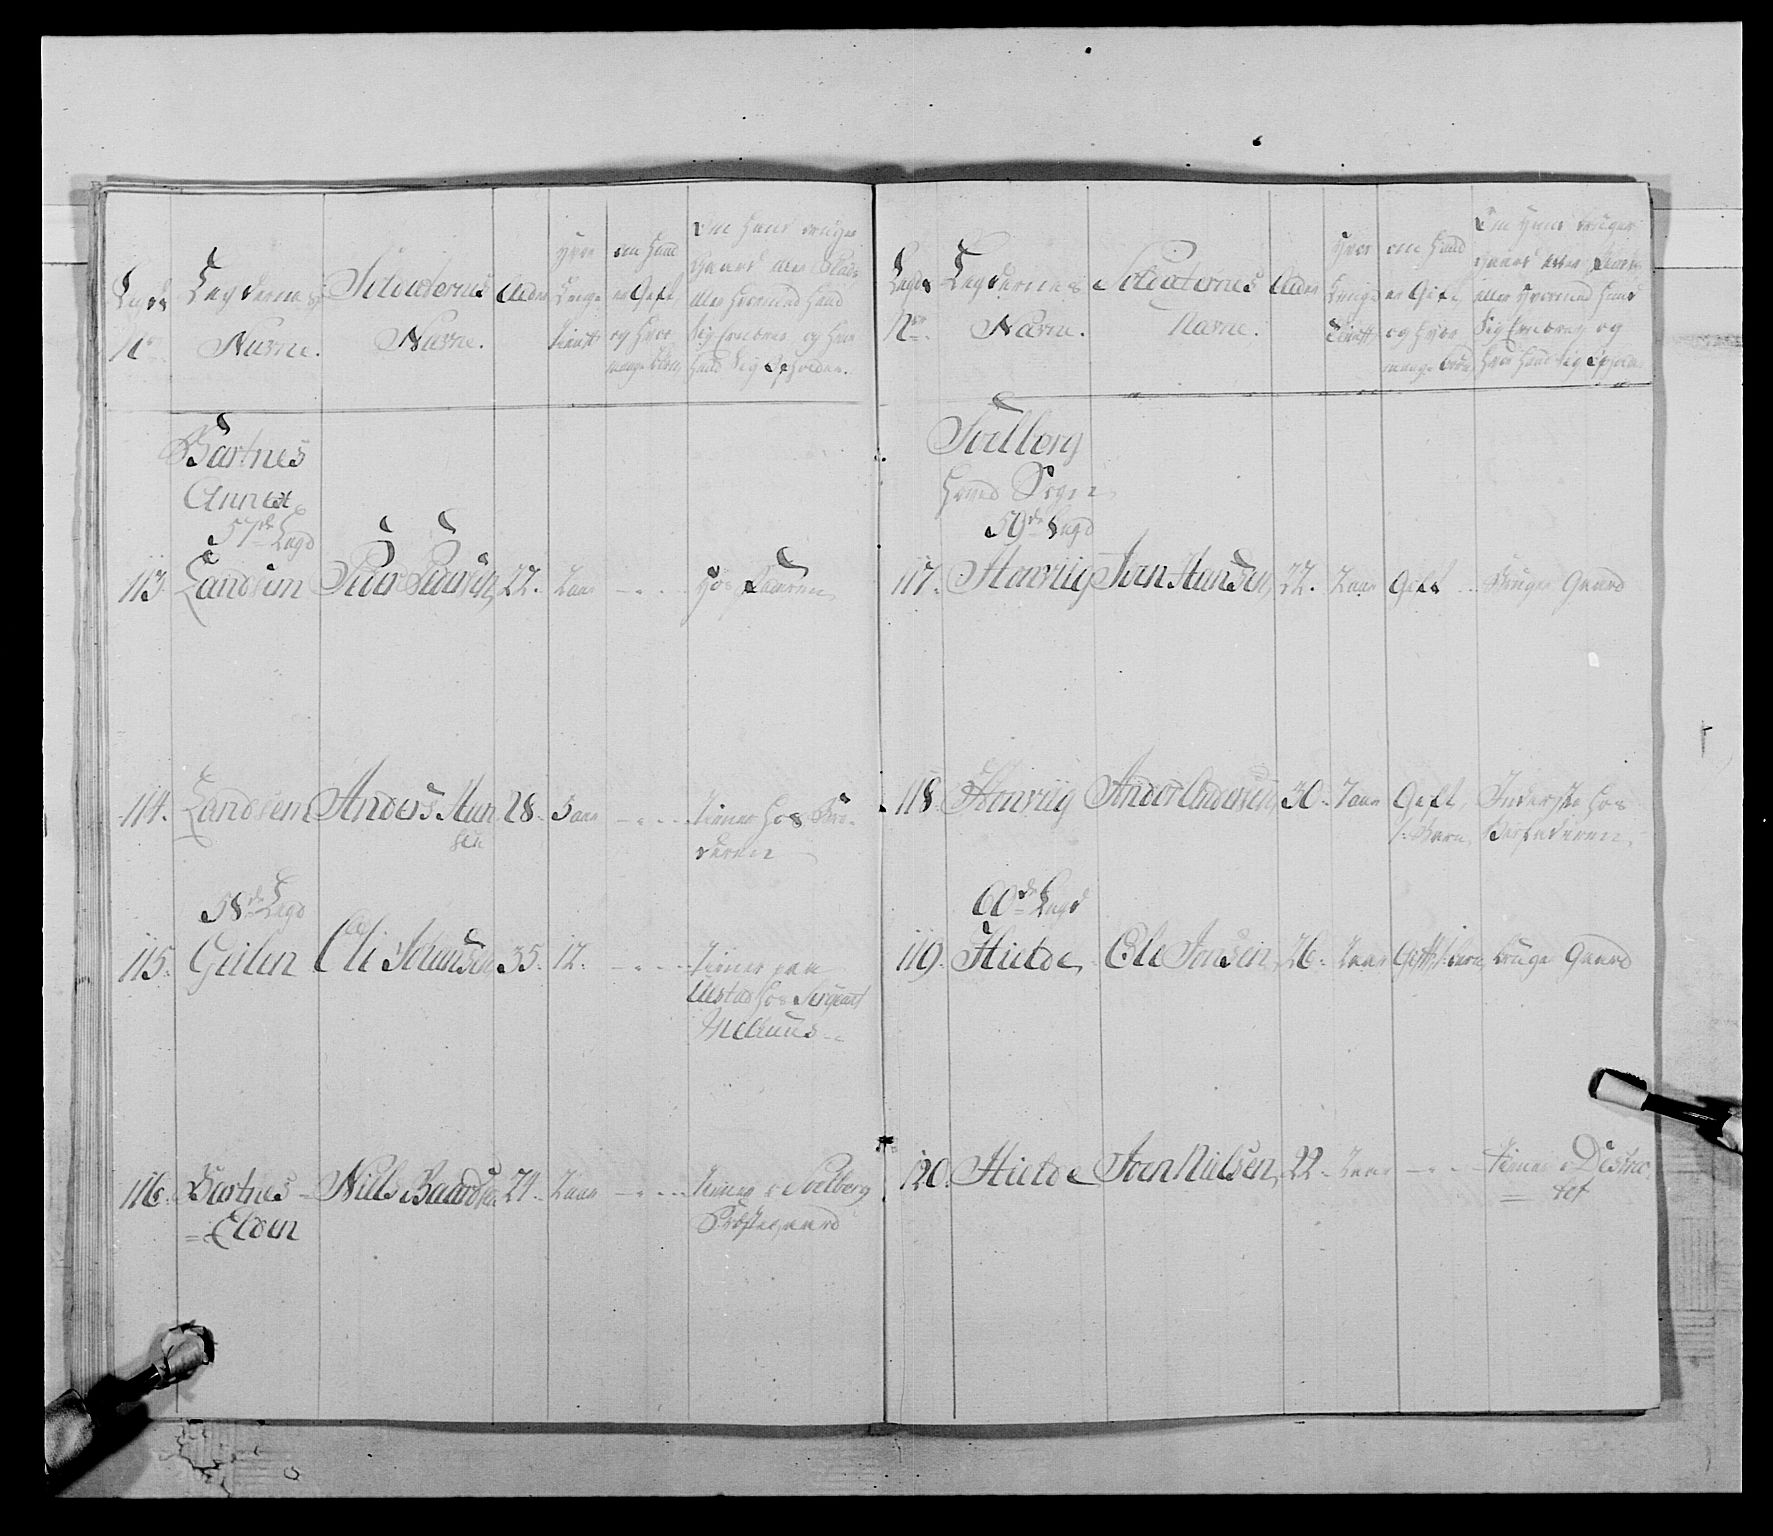 Legds
No
Legdernes
Navne.
Soldaternes
Navne.
Alder
Hvor
Lenge
tient
om Hand
er Gift,
og Hvor
mange Børn
Om Hand bruger
Gaard eller Plads
eller Hvormed Hand
Sig Ernærer og Hvor
Hand Sig Opholder.
Bartnes
Annex
57de Legd
113. Landsem Peder Pedersen, 22. 2 aar - Hos Faderen,
114. Landsem Anders Han 28. 3 aar - tiener hos Bro-
sen
deren
58de Legd
115. Geilen Ole Johansen, 35. 12. - tiener paa
Ulstad hos Sergeant
116. Bartnes Niels Baardsen 24. 2 aar - tiener i Solberg
= Elden
Præstegaard
Legds
No.
Legdernes
Navne.
Soldaternes
Navne.
Alder
Hvor
Lenge
tient
om Hand
er Gift,
og Hvor
mange Børn
Om Hand bruger
Gaard eller Plads
eller Hvormed Hand
Sig Ernærer og
Hvor Hand Sig Ophol
Solberg
Hoved Sogn
59de Legd
117. Iven Hansen, 22. 2 aar Gift - bruger Gaard
118. Anders Andersen, 30. 2 aar Gift, Inderste hos
1. Barn, Verfaderen,
60de Legd
119. Hielde, Ole Jonsen, 26. 2 aar Gift, 1 barn, bruger Gaard
120. Hielde Iven Nielsen, 22. 2 aar - tiener i Distric
= tet